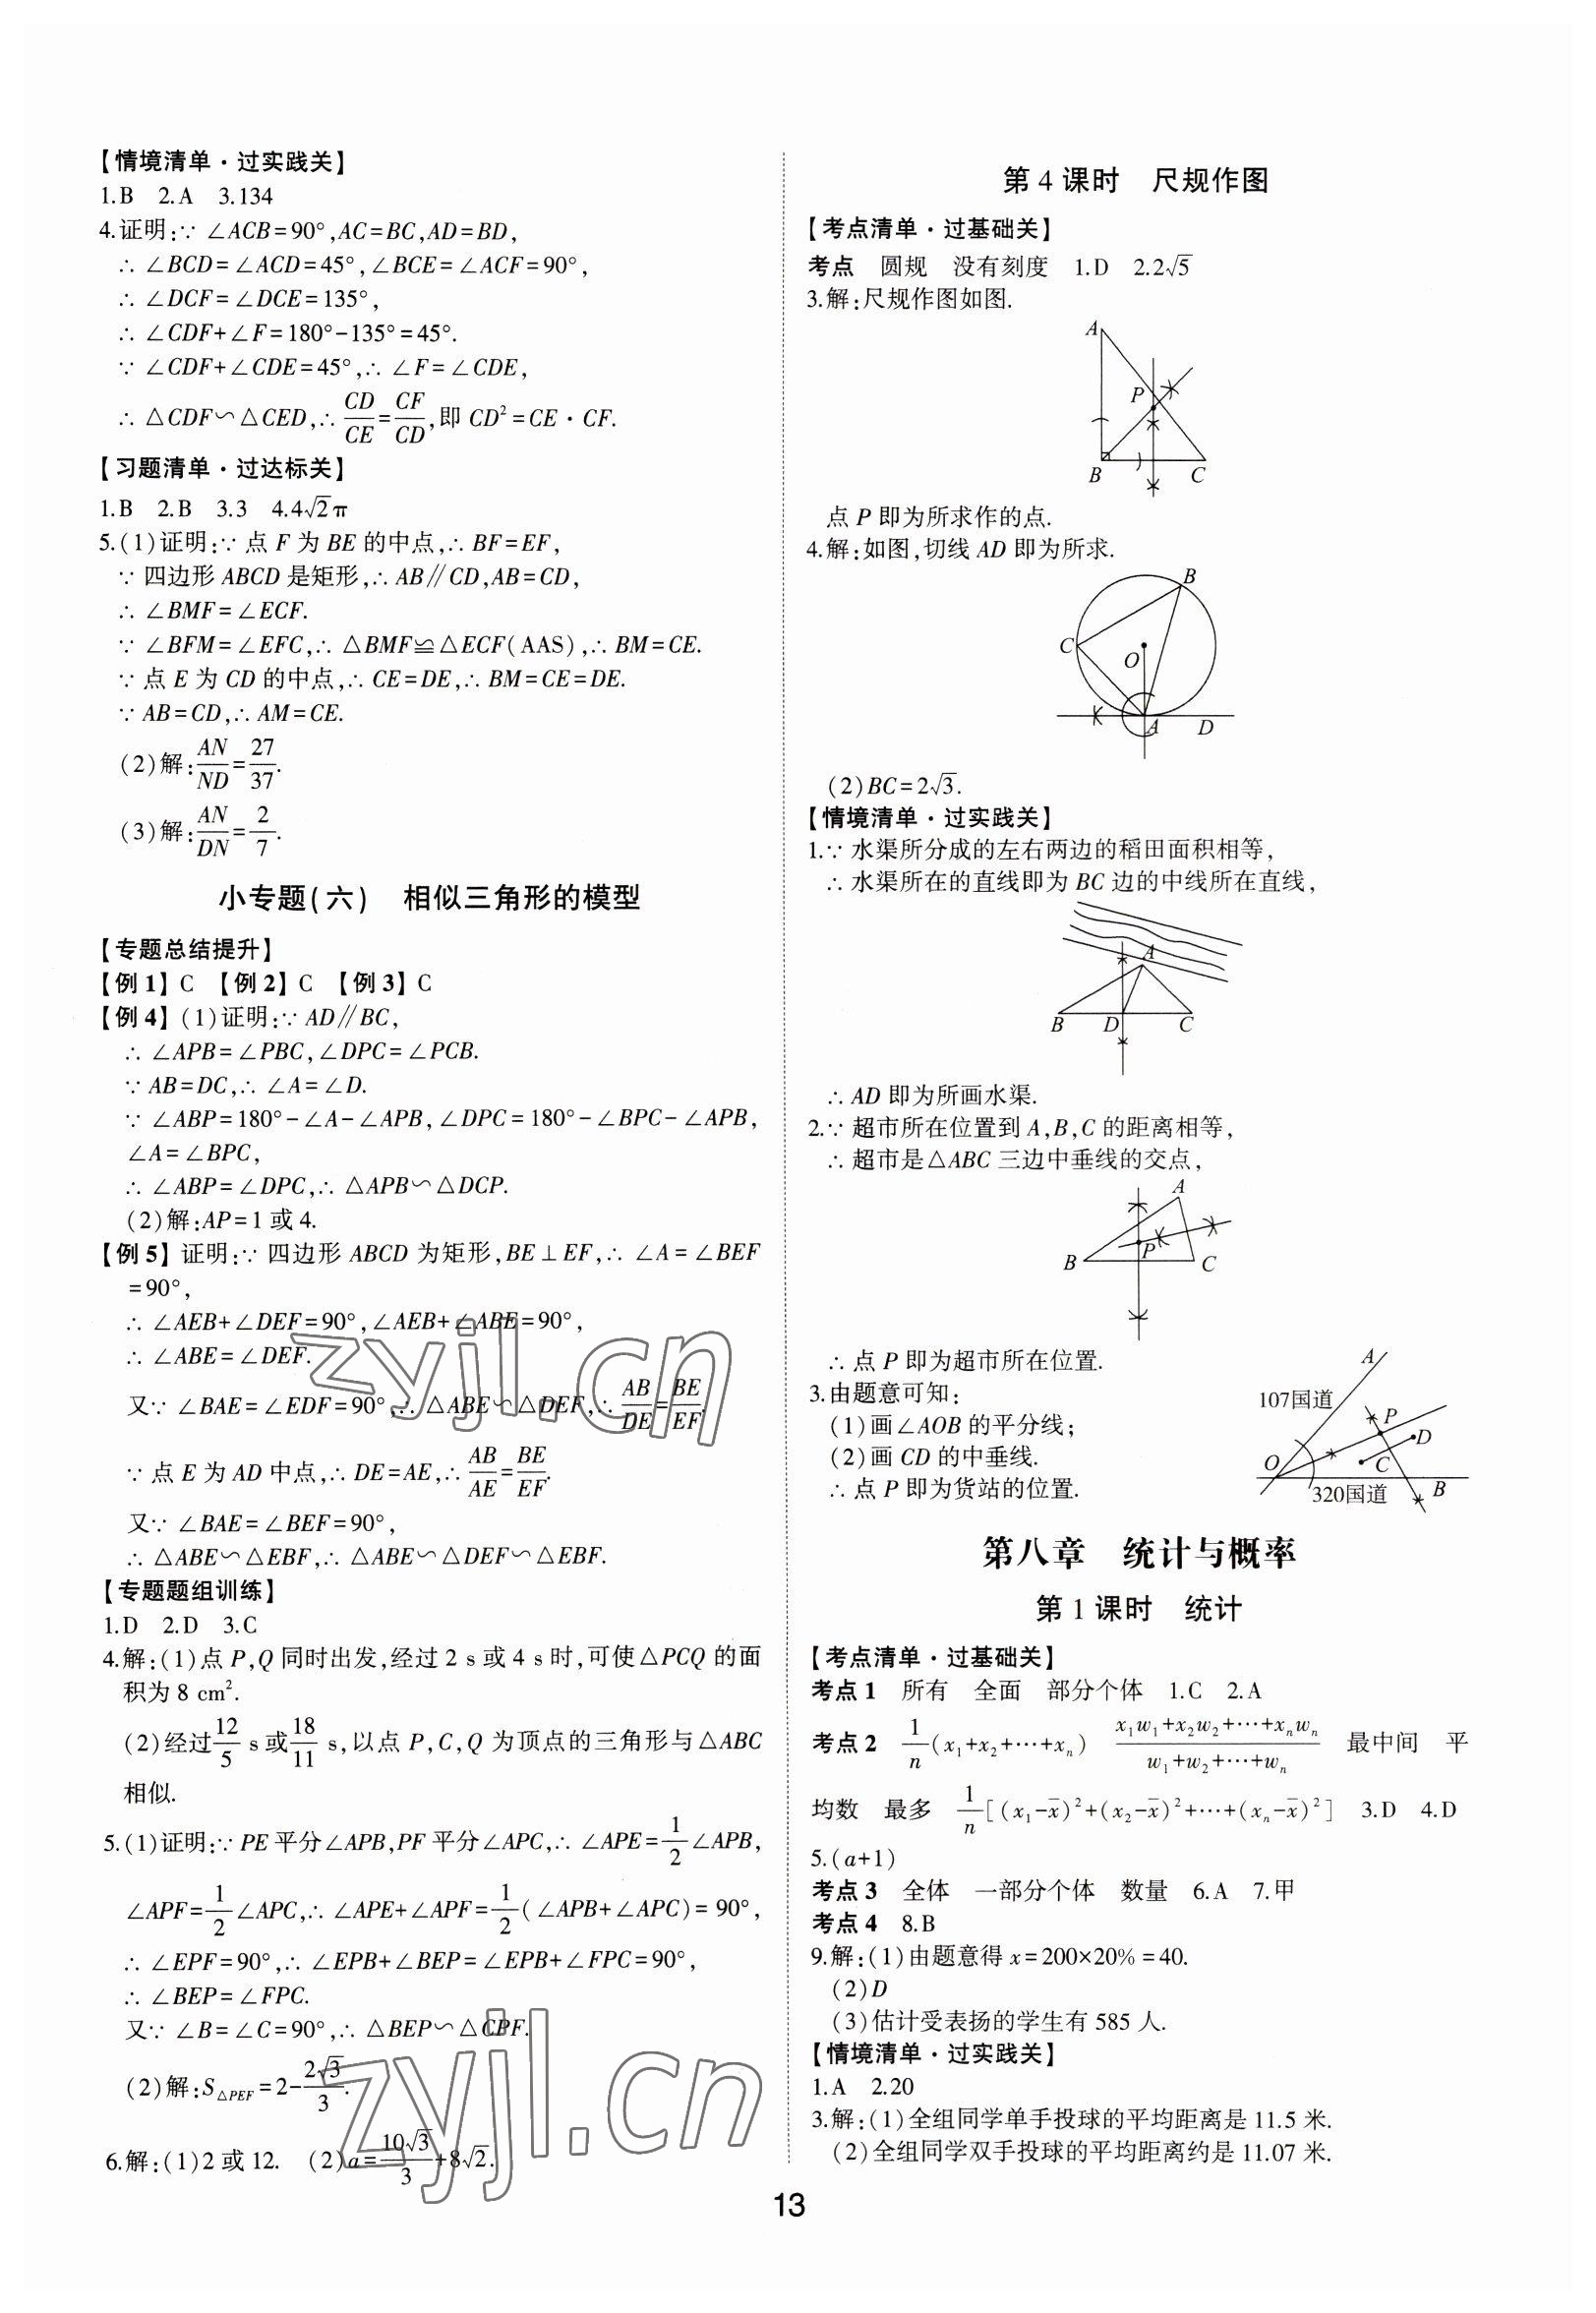 【情境清单·过实践关】
1.B 2.A 3.134
4.证明:∵ ∠ACB=90°,AC=BC,AD=BD,
∴ ∠BCD=∠ACD=45°,∠BCE=∠ACF=90°,
∴ ∠DCF=∠DCE=135°,
∴ ∠CDF+∠F=180°-135°=45°.
∵ ∠CDF+∠CDE=45°,∴ ∠F=∠CDE,
∴ △CDF∽△CED,∴ CD/CE=CF/CD,即 CD²=CE·CF.
【习题清单·过达标关】
1.B 2.B 3.3 4.4√2π
5.(1)证明:∵ 点 F 为 BE 的中点,∴ BF=EF,
∵ 四边形 ABCD 是矩形,∴ AB∥CD,AB=CD,
∴ ∠BMF=∠ECF.
∵ ∠BFM=∠EFC,∴ △BMF≌△ECF(AAS),∴ BM=CE.
∵ 点 E 为 CD 的中点,∴ CE=DE,∴ BM=CE=DE.
∵ AB=CD,∴ AM=CE.
(2)解:AN/ND=27/37.
(3)解:AN/DN=2/7.
小专题(六) 相似三角形的模型
【专题总结提升】
【例1】C 【例2】C 【例3】C
【例4】(1)证明:∵ AD∥BC,
∴ ∠APB=∠PBC,∠DPC=∠PCB.
∵ AB=DC,∴ ∠A=∠D.
∵ ∠ABP=180°-∠A-∠APB,∠DPC=180°-∠BPC-∠APB,
∠A=∠BPC,
∴ ∠ABP=∠DPC,∴ △APB∽△DCP.
(2)解:AP=1 或 4.
【例5】证明:∵ 四边形 ABCD 为矩形,BE⊥EF,∴ ∠A=∠BEF
=90°,
∴ ∠AEB+∠DEF=90°,∠AEB+∠ABE=90°,
∴ ∠ABE=∠DEF.
又∵ ∠BAE=∠EDF=90°,∴ △ABE∽△DEF,∴ AB/DE=BE/EF.
∵ 点 E 为 AD 中点,∴ DE=AE,∴ AB/AE=BE/EF.
又∵ ∠BAE=∠BEF=90°,
∴ △ABE∽△EBF,∴ △ABE∽△DEF∽△EBF.
【专题题组训练】
1.D 2.D 3.C
4.解:(1)点 P,Q 同时出发,经过 2 s 或 4 s 时,可使△PCQ 的面
积为 8 cm².
(2)经过12/5 s 或18/11 s,以点 P,C,Q 为顶点的三角形与△ABC
相似.
5.(1)证明:∵ PE 平分∠APB,PF 平分∠APC,∴ ∠APE=1/2∠APB,
∠APF=1/2∠APC,∴ ∠APE+∠APF=1/2(∠APB+∠APC)=90°,
∴ ∠EPF=90°,∴ ∠EPB+∠BEP=∠EPB+∠FPC=90°,
∴ ∠BEP=∠FPC.
又∵ ∠B=∠C=90°,∴ △BEP∽△CPF.
(2)解:S△PEF=2-2√3/3.
6.解:(1)2 或 12. (2)a=10√3/3+8√2.
第 4 课时 尺规作图
【考点清单·过基础关】
考点 圆规 没有刻度 1.D 2.2√5
3.解:尺规作图如图.
A
P
B C
点 P 即为所求作的点.
4.解:如图,切线 AD 即为所求.
B
C
O
A D
(2)BC=2√3.
【情境清单·过实践关】
1.∵ 水渠所分成的左右两边的稻田面积相等,
∴ 水渠所在的直线即为 BC 边的中线所在直线,
A
B D C
∴ AD 即为所画水渠.
2.∵ 超市所在位置到 A,B,C 的距离相等,
∴ 超市是△ABC 三边中垂线的交点,
A
P
B C
∴ 点 P 即为超市所在位置.
3.由题意可知:
(1)画∠AOB 的平分线;
(2)画 CD 的中垂线.
∴ 点 P 即为货站的位置.
A
107国道
P
D
O C
320国道 B
第八章 统计与概率
第 1 课时 统计
【考点清单·过基础关】
考点 1 所有 全面 部分个体 1.C 2.A
考点 2 1/n(x₁+x₂+⋯+xₙ) (x₁w₁+x₂w₂+⋯+xₙwₙ)/(w₁+w₂+⋯+wₙ) 最中间 平
均数 最多 1/n[(x₁-x̄)²+(x₂-x̄)²+⋯+(xₙ-x̄)²] 3.D 4.D
5.(a+1)
考点 3 全体 一部分个体 数量 6.A 7.甲
考点 4 8.B
9.解:(1)由题意得 x=200×20%=40.
(2)D
(3)估计受表扬的学生有 585 人.
【情境清单·过实践关】
1.A 2.20
3.解:(1)全组同学单手投球的平均距离是 11.5 米.
(2)全组同学双手投球的平均距离约是 11.07 米.
13
zyjl.cn
zyjl.cn